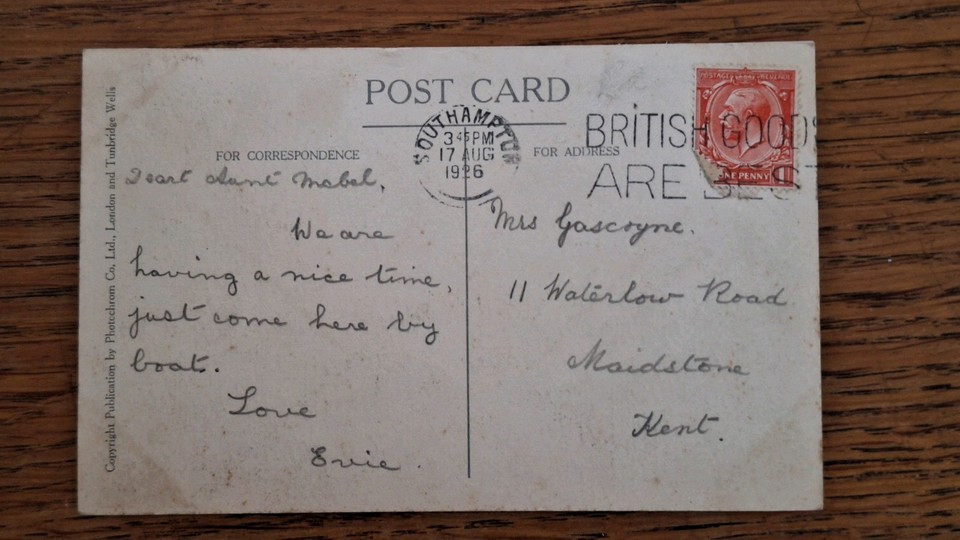 POST CARD
SOUTHAMPTON
3 45 PM
17 AUG
1926
BRITISH GOODS
ARE BEST
POSTAGE REVENUE
ONE PENNY
FOR CORRESPONDENCE
FOR ADDRESS
Dear Aunt Mabel,
We are
having a nice time,
just come here by
boat.
Love
Evie.
Mrs Gascoyne.
11 Waterlow Road
Maidstone
Kent.
Copyright Publication by Photochrom Co, Ltd., London and Tunbridge Wells